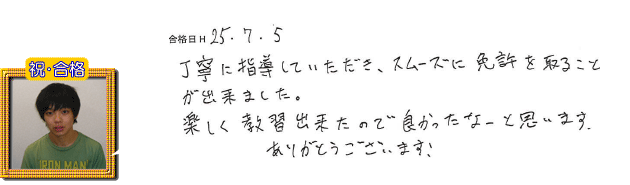 合格日H 25.7.5
祝・合格
丁寧に指導していただき、スムーズに免許を取ること
が出来ました。
楽しく教習出来たので良かったなーと思います。
ありがとうございます!
IRON MAN